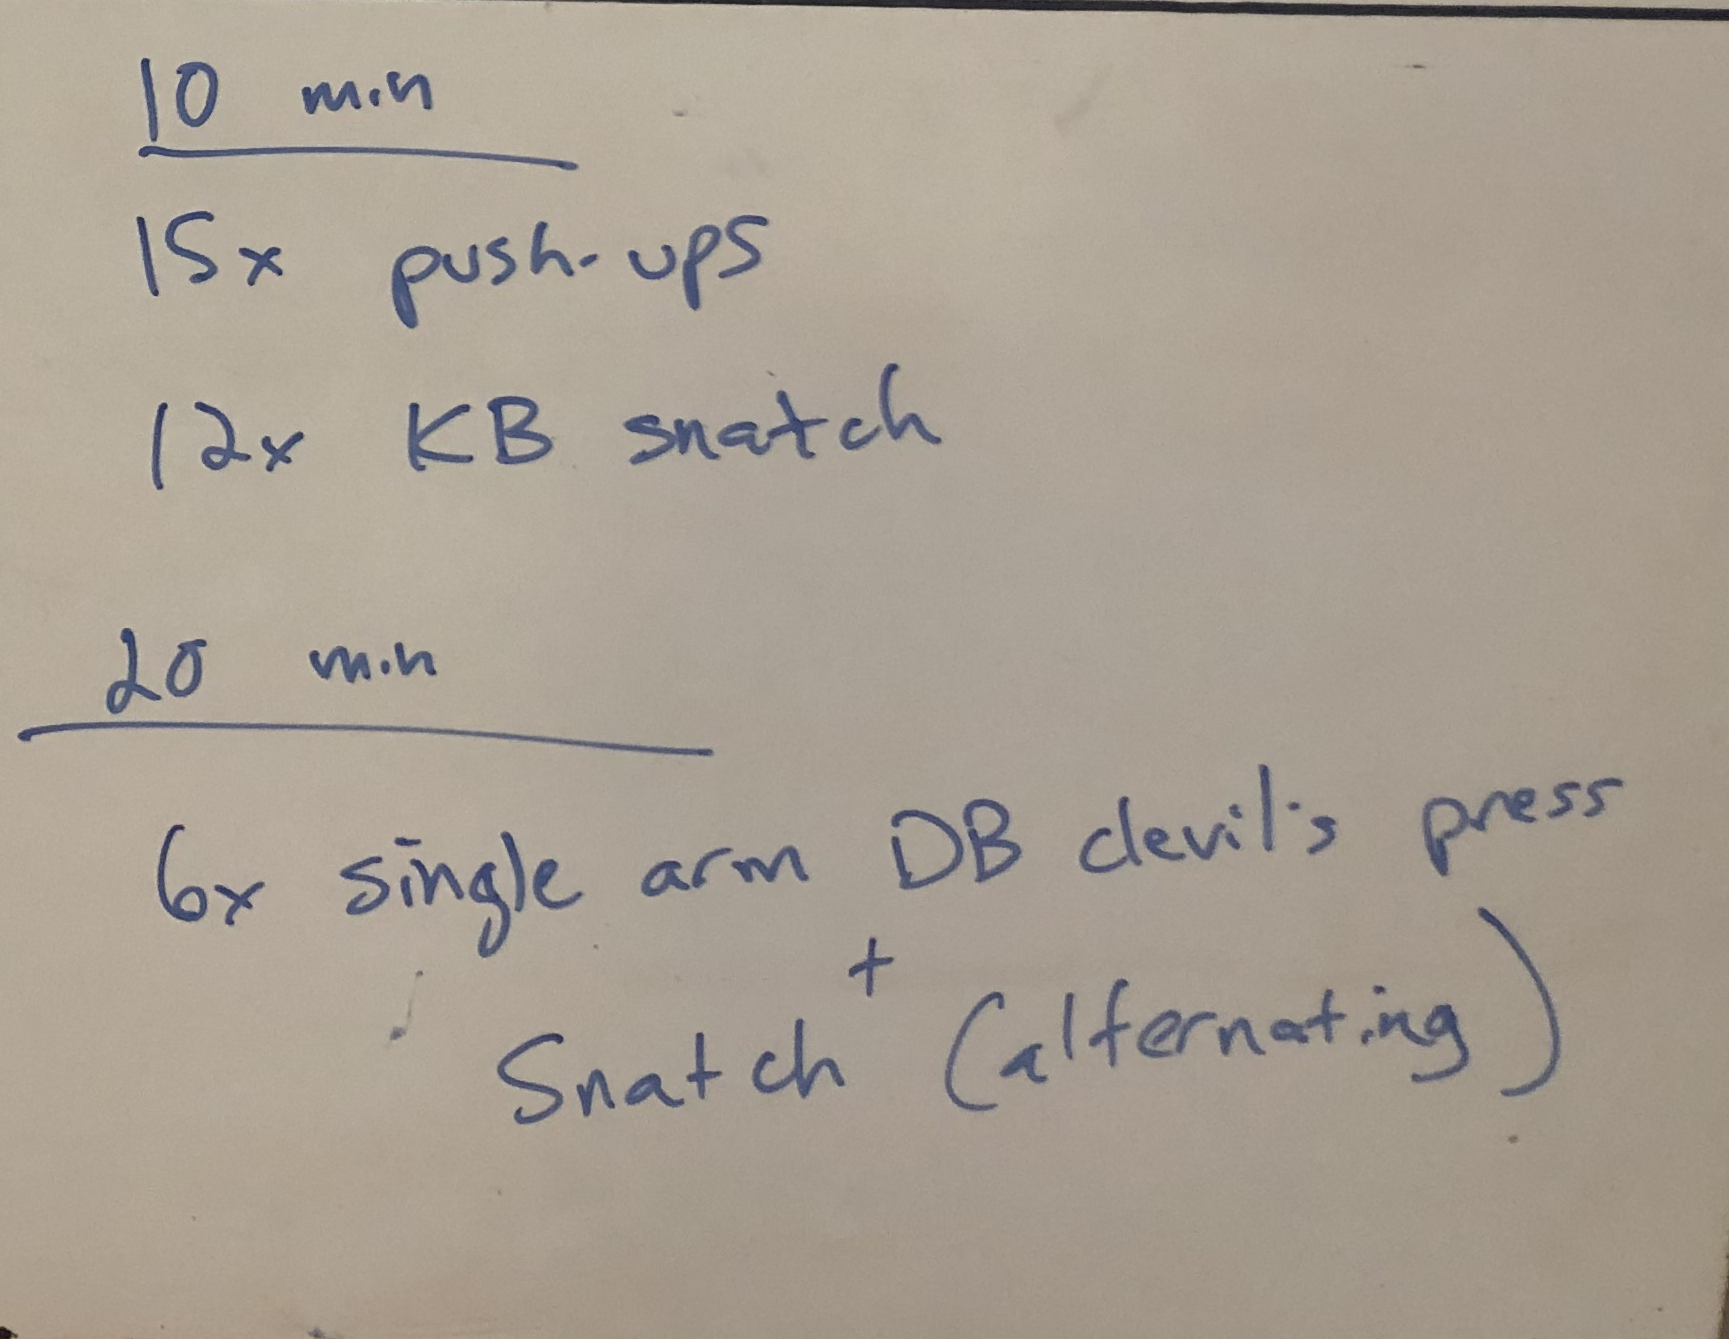 10 min
15x push-ups
12x KB snatch
20 min
6x single arm DB devil's press
+
Snatch (alternating)